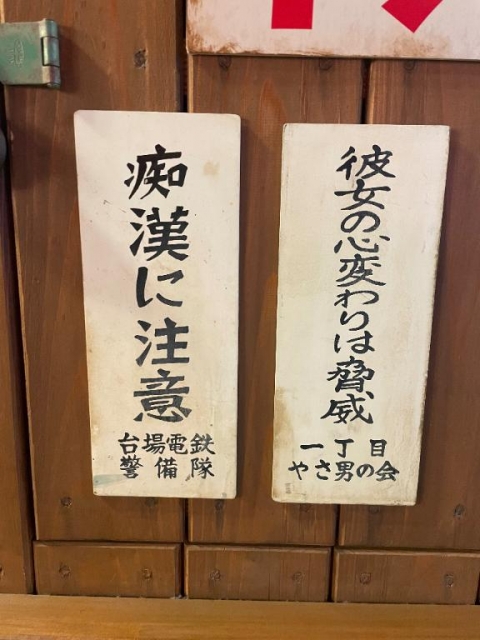 痴漢に注意
台場電鉄
警備隊
彼女の心変わりは脅威
一丁目
やさ男の会